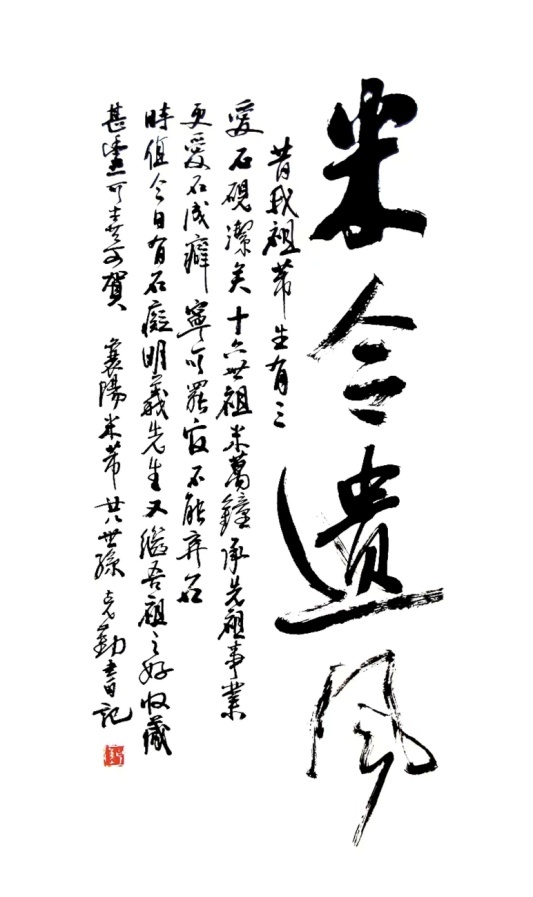 米公遗风
昔我祖芾生有三
爱石砚洁矣十六世祖米萬鐘承先祖事業
更爱石成癖寧可罷官不能弃石
時值今日有石癡明義先生又繼吾祖之好收藏
甚豐可喜可賀 襄陽米芾廿八世孫克勤書記